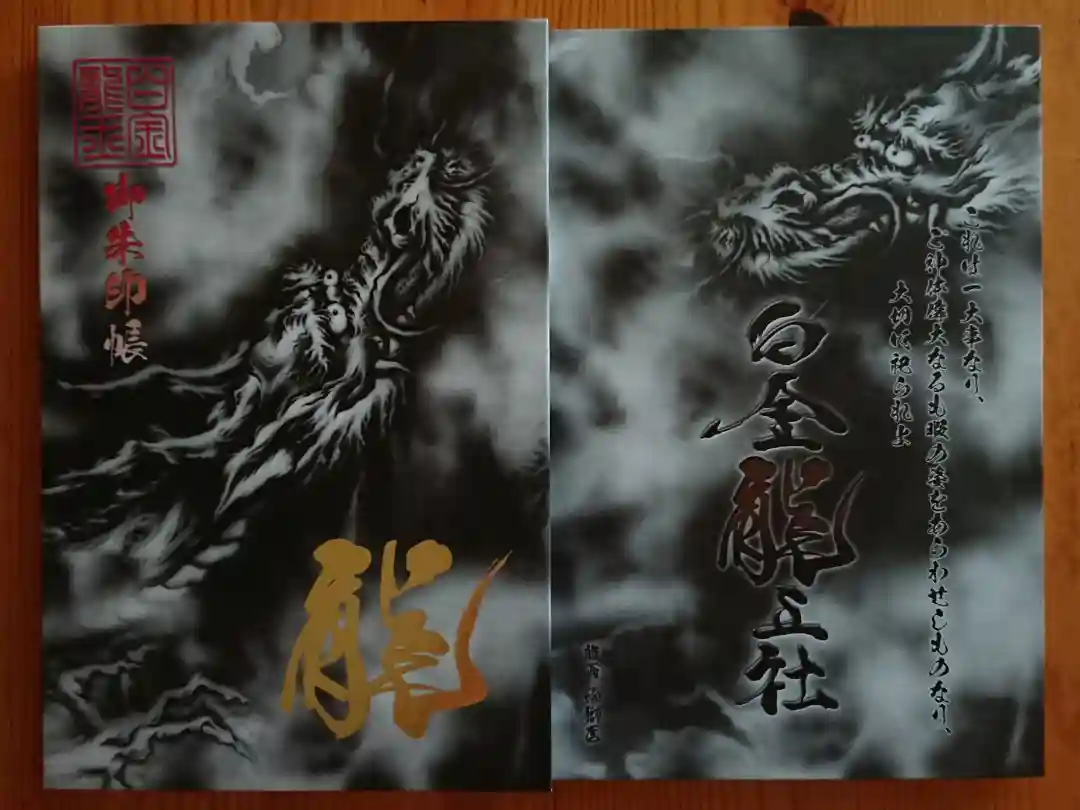 白金
龍王
御朱印帳
龍
これは一大事なり、
ご神体偉大なるも假の姿をあらわせしものなり、
大切に祀られよ
白金龍王社